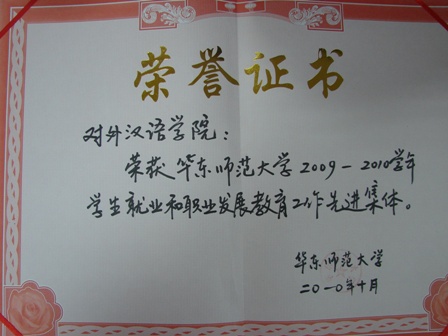 荣誉证书
对外汉语学院：
荣获华东师范大学2009－2010学年
学生就业和职业发展教育工作先进集体。
华东师范大学
二〇一〇年十月